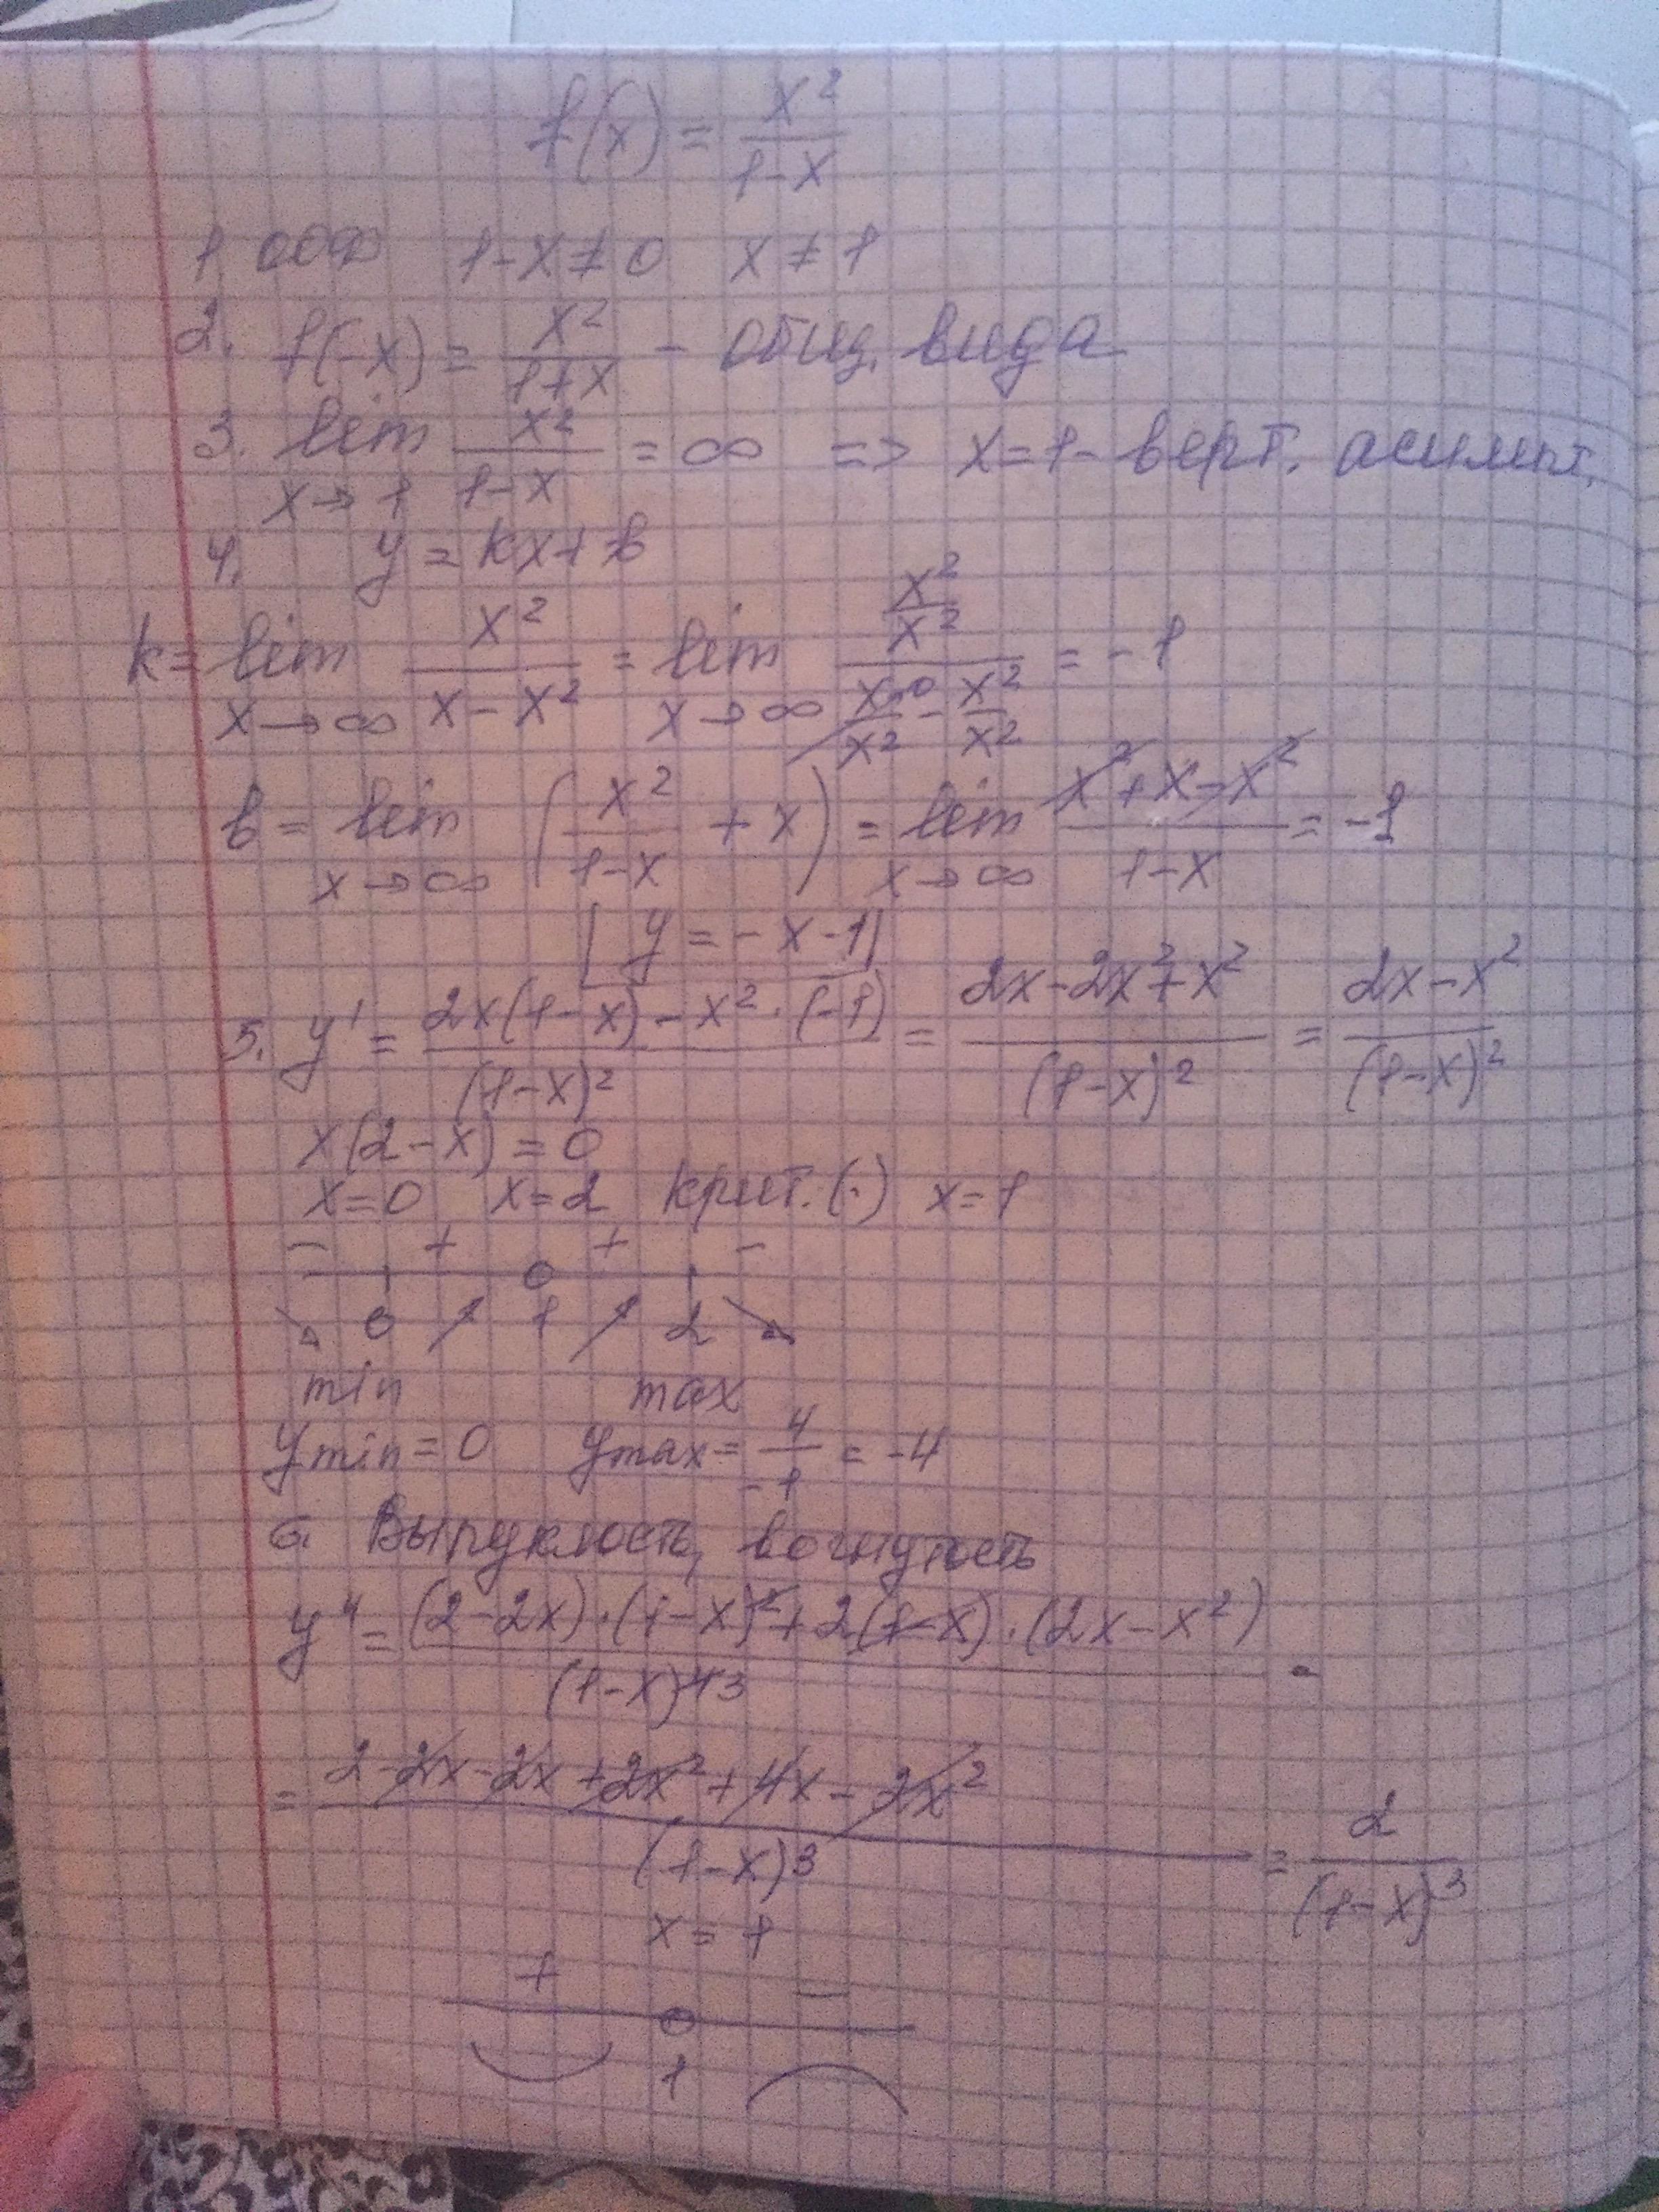 f(x) = x²/(1-x)
1. ООФ 1-x≠0 x≠1
2. f(-x) = x²/(1+x) - общ. вида
3. lim x→1 x²/(1-x) = ∞ => x=1- верт. асимпт.
4. y = kx+b
k = lim x→∞ x²/(x-x²) = lim x→∞ (x²/x²)/(x/x² - x²/x²) = -1
b = lim x→∞ (x²/(1-x) + x) = lim x→∞ (x²+x-x²)/(1-x) = -1
y = -x-1
5. y' = (2x(1-x) - x²·(-1))/(1-x)² = (2x-2x²+x²)/(1-x)² = (2x-x²)/(1-x)²
x(2-x) = 0
x=0 x=2 крит. (·) x=1
- + + -
0 1 2
min max
y min = 0 y max = 4/-1 = -4
6. Выпуклость, вогнутость
y'' = ((2-2x)·(1-x)²+2(1-x)·(2x-x²))/(1-x)⁴3 =
= (2-2x-2x+2x²+4x-2x²)/(1-x)³ = 2/(1-x)³
x = 1
+ -
1